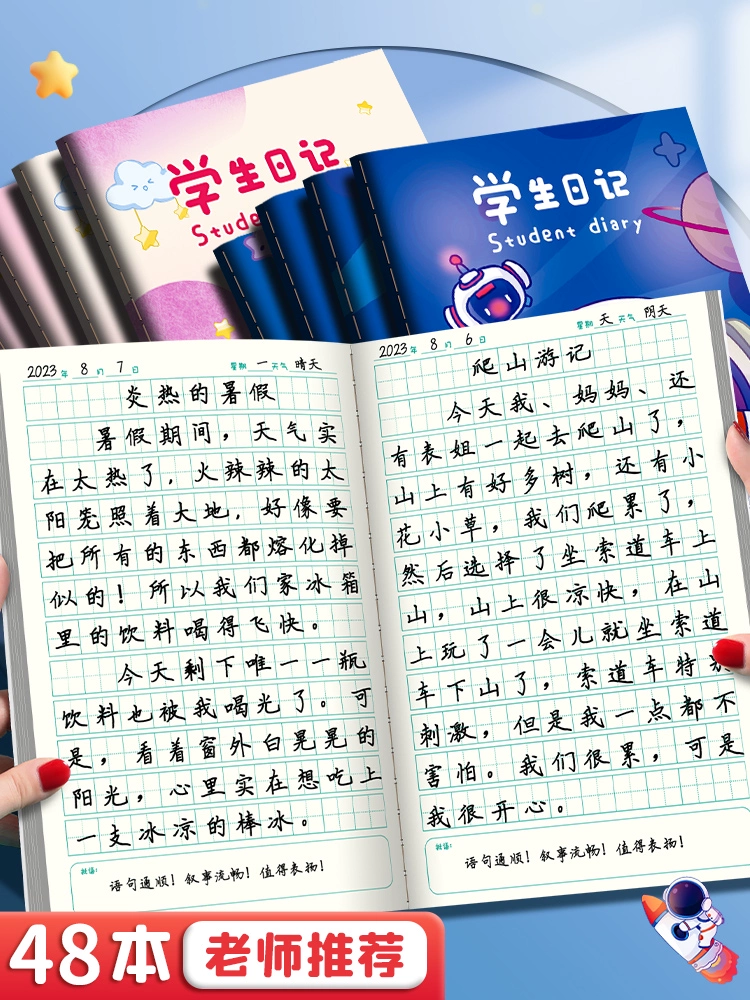 学生日记
Student
学生日记
Student diary
2023年 8月 7日 星期 一 天气 晴天
炎热的暑假
暑假期间，天气实
在太热了，火辣辣的太
阳烤照着大地，好像要
把所有的东西都熔化掉
似的！所以我们家冰箱
里的饮料喝得飞快。
今天剩下唯一一瓶
饮料也被我喝光了。可
是，看着窗外白晃晃的
阳光，心里实在想吃上
一支冰凉的棒冰。
批语：
语句通顺！叙事流畅！值得表扬！
2023年 8月 6日 星期 天 天气 阴天
爬山游记
今天我、妈妈、还
有表姐一起去爬山了，
山上有好多树，还有小
花小草，我们爬累了，
然后选择了坐索道车上
山，山上很凉快，在山
上玩了一会儿就坐索道
车下山了，索道车特别
刺激，但是我一点都不
害怕。我们很累，可是
我很开心。
批语：
语句通顺！叙事流畅！值得表扬！
48本
老师推荐